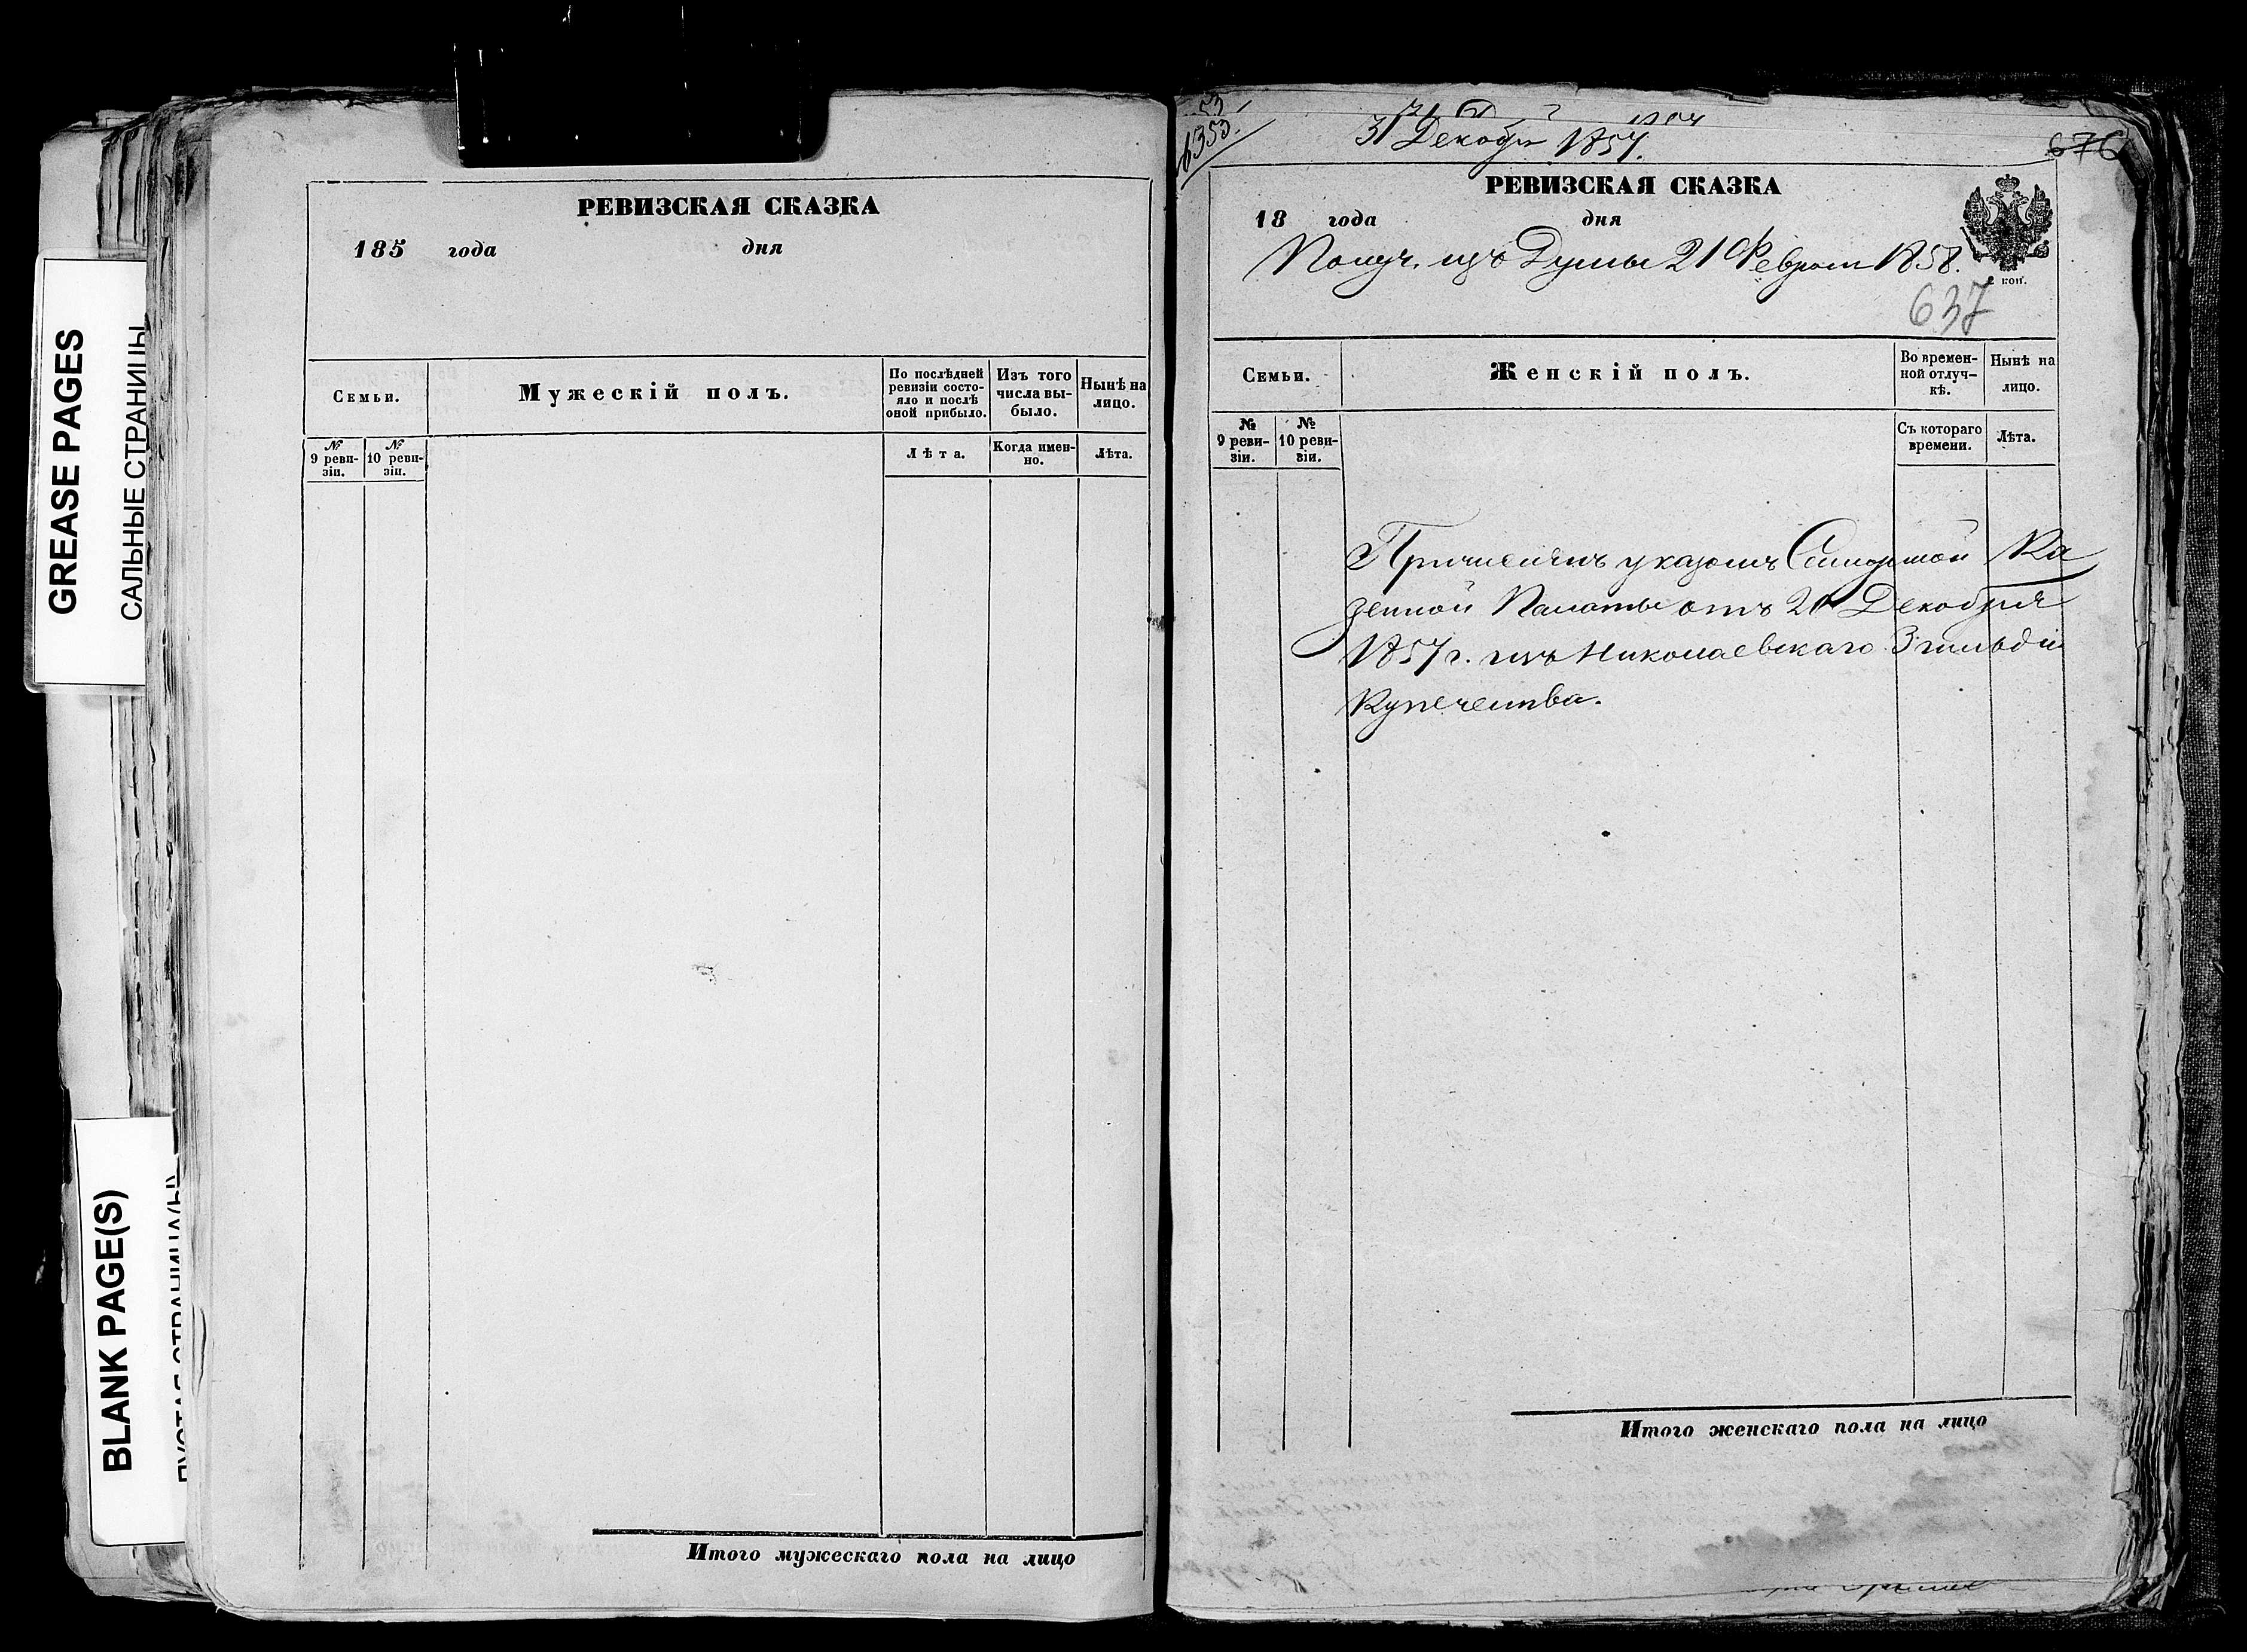 GREASE PAGES
САЛЬНЫЕ СТРАНИЦЫ
BLANK PAGE(S)
РЕВИЗСКАЯ СКАЗКА
185 года дня
Семьи.
Мужескій полъ.
По послѣдней
ревизіи состо-
яло и послѣ
оной прибыло.
Изъ того
числа вы-
было.
Нынѣ на
лицо.
№
9 реви-
зіи.
№
10 реви-
зіи.
Лѣта.
Когда имен-
но.
Лѣта.
Итого мужескаго пола на лицо
6353.
31 Декабря 1857.
676
РЕВИЗСКАЯ СКАЗКА
18 года дня
Получ. изъ Думы 21 Февраля 1858.
2 коп.
637
Семьи.
Женскій полъ.
Во времен-
ной отлуч-
кѣ.
Нынѣ на
лицо.
№
9 реви-
зіи.
№
10 реви-
зіи.
Съ котораго
времени.
Лѣта.
Причисленъ указомъ Самарской Ка
зенной Палаты отъ 21 Декабря
1857 г. изъ Николаевскаго 3 гильдіи
Купечества.
Итого женскаго пола на лицо